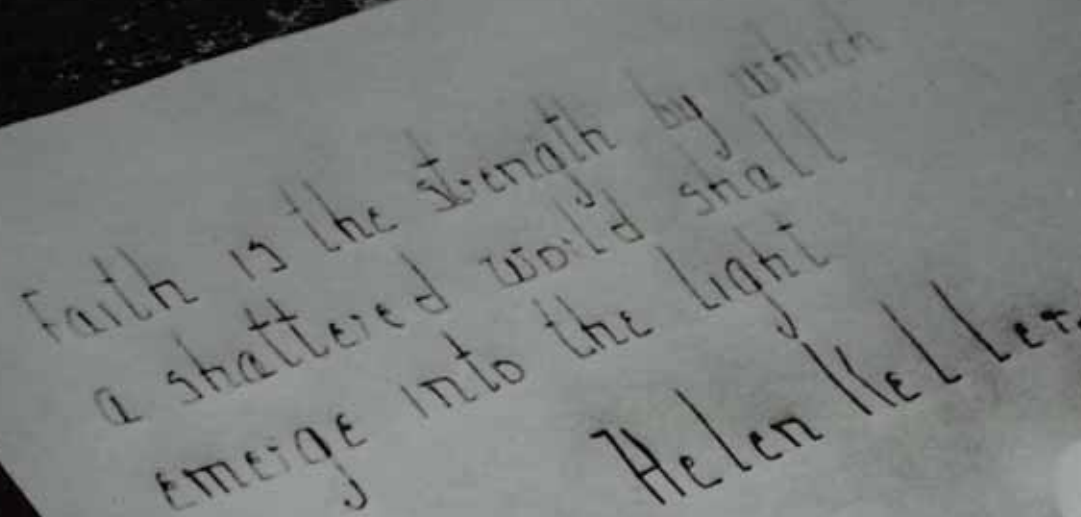 Faith is the strength by which
a shattered world shall
emerge into the light
Helen Keller.